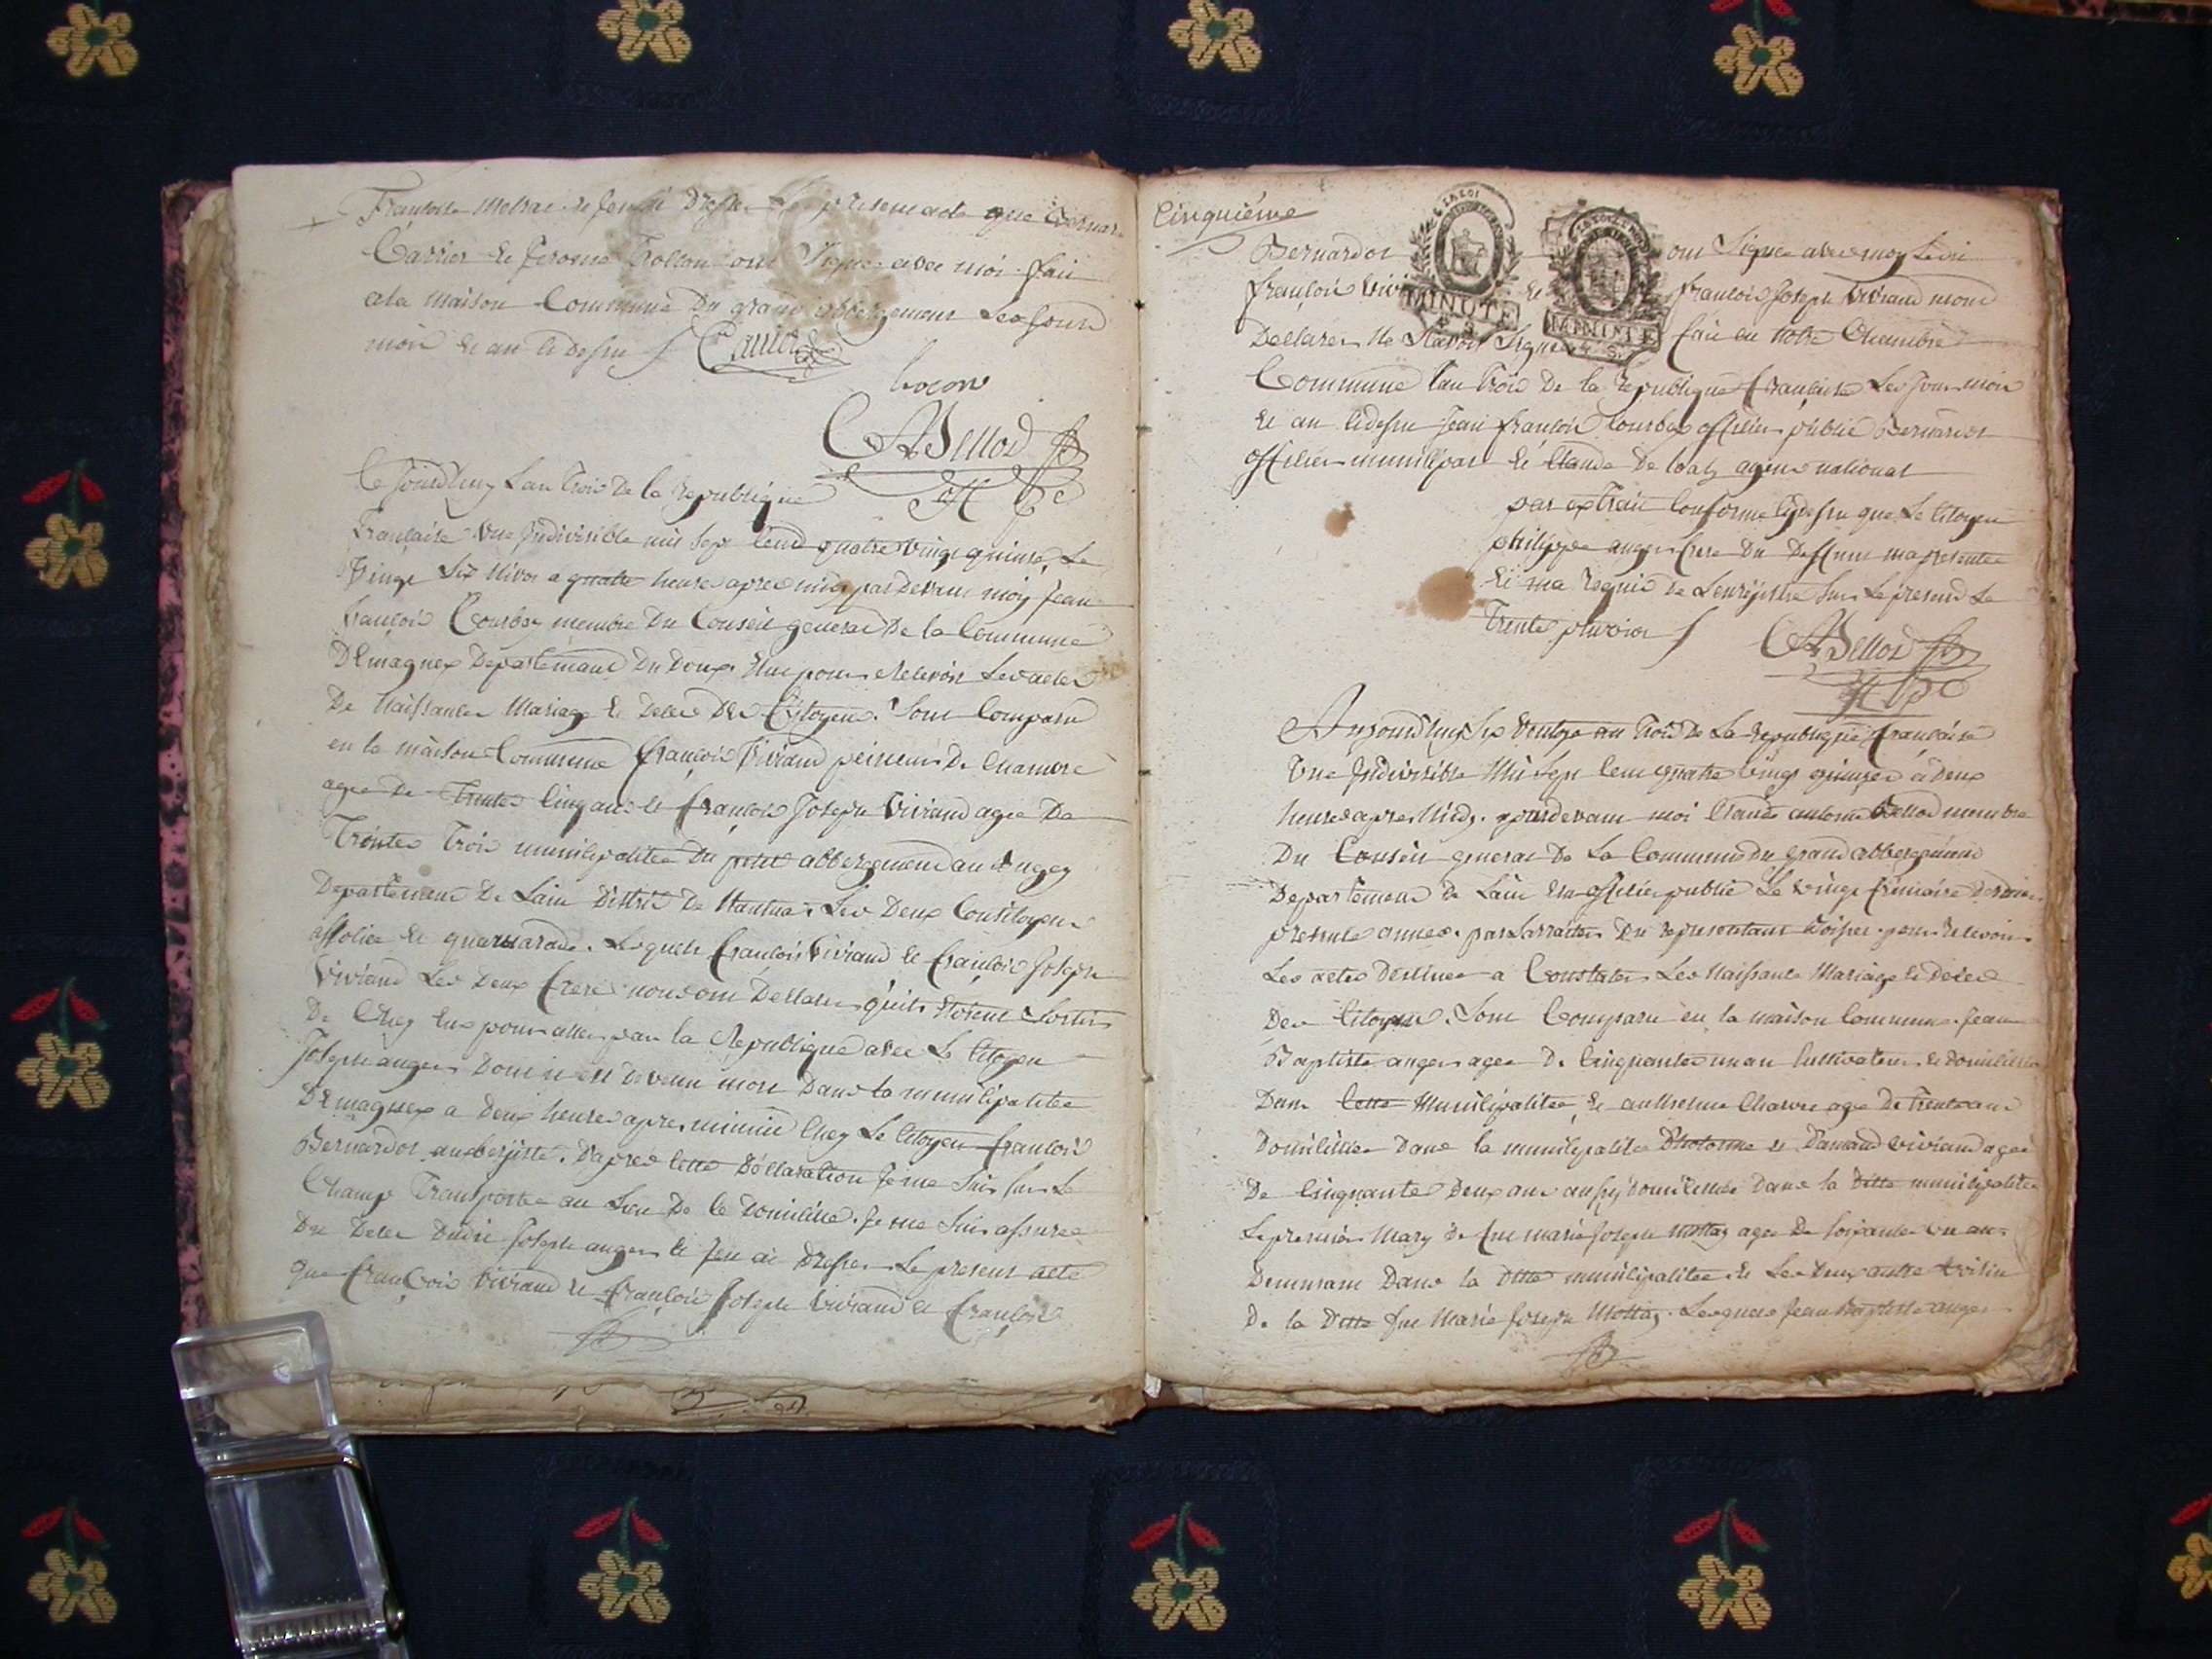 Francoise Molrac et jen ai Dresser Le present acte que Bernar
Carrier et Jerosme Tollon ont Signe avec moi fait
a la maison Commune Du grand abbergement Les Jour
mois et an ci dessu
Carrier
bocon
CA Bellod
off pc
Ce Jourdhuy Lan trois De la republique
Francaise une Indivisible mil sept cend quatre vingt quinse, Le
Vingt Six Nivos a quatre heure apres midy pardevant moy Jean
francois Courbey membre Du Conseil general De la Commune
Departemant Du Doux Elue pour Relevoir Les actes
De Naissance Mariage et Deces Des Citoyen. Sont Comparu
en la maison Commune francois Viviand peineur De Chanvre
agee De Trente Cinq ans et francois Joseph Viviand agee De
Trentes Trois municipalitee Du petit abbergement au Bugey
Departement De Lain District De Nantua. Les Deux Concitoyens
. Lesquels francois Viviand et francois Joseph
Viviand Les Deux frere nous ont Declarer quils Etoient Sortis
De Chez Eux pour aller par la Republique avec Le Citoyen
Joseph anger Dont il est Devenu mort Dans la municipalitee
a Deux heure apres minuit Chez Le Citoyen francois
Bernardot aubergiste. D'apres cette Declaration Je me Suis Sur Le
Champ Transportee au Lieu De Ce Domicille. Je me Suis assuree
Du Deces Dudit Joseph anger et Jen ai Dresser Le present acte
que francois Viviand et francois Joseph Viviand et francois
Cinquiéme
Bernardot ont Signe avec moy Ledit
francois Vivi et francois Joseph Viviand mont
Declarer Ne Scavoir Signer fait en Notre Chambre
Commune Lan trois De la republique francaise Les Jour mois
et an cidessu Jean francois Courbey officier public Bernardot
officier municipal et Claude agent national
par extrait Conforme cidessu que Le Citoyen
philippe anger frere Du Deffunt ma presentee
et ma requis de Lenregistre Sur Le present Le
Trente pluvios
CA Bellod
off pc
Aujourdhuy Six Ventose an trois De La republique francaise
Une Indivisible Mil Sept Cent quatre vingt quinses a Deux
heures apres Midy. pardevant moi Claude antoine Bellod membre
Du Conseil general De La Commune Du grand abbergement
Departement De Lain Elu officier public Le vingt frimaire Dernier
presente annee. par Larretee Du representant Boisset pour relevoir
Les actes Destinee a Constater Les Naissance Mariage et Deces
Des Citoyen. Sont Comparu en la maison Commune. Jean
Baptiste anger agee De Cinquantes un an Cultivateur et Domicillier
Dans Cette Municipalitee, et anthelme Charve age De trente ans
Domicilliee Dans la municipalitee Dhotonne et Viviand agee
De Cinquantes Deux ans aussy Domicilliee Dans la Ditte municipalitee
Le premier Mary De fue marie Joseph Mottaz agee De Soixantes un an
Demurant Dans la Ditte municipalitee. et Les Deux autre Voisin
De la Ditte fue Marie Joseph Mottaz. Lesquels Jean Baptiste anger
LA LOI
MINUTE
MINUTE